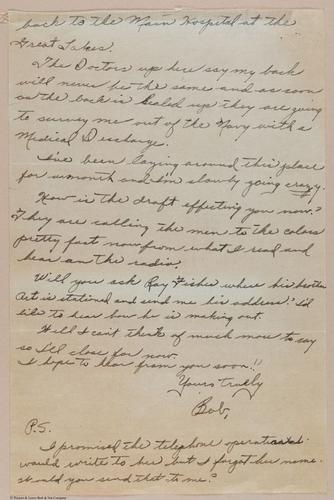 back to the Main Hospital at the
Great Lakes.
The Doctors up here say my back
will never be the same and as soon
as the back is healed up they are going
to survey me out of the Navy with a
Medical Discharge.
I've been laying around this place
for a month and I'm slowly going crazy.
How is the draft effecting you now?
They are calling the men to the colors
pretty fast now from what I read and
hear on the radio.
Will you ask Ray Fisher where his brother
Art is stationed and send me his address? I'd
like to hear how he is making out.
Well I can't think of much more to say
so I'll close for now.
I hope to hear from you soon!!
Yours truly
Bob,
P.S.
I promised the telephone operator I
would write to her but I forgot her name.
Would you send that to me?